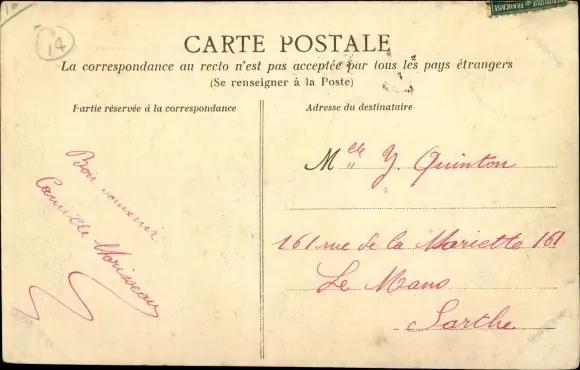 10
14
RÉPUBLIQUE FRANÇAISE
CARTE POSTALE
La correspondance au recto n'est pas acceptée par tous les pays étrangers
(Se renseigner à la Poste)
Partie réservée à la correspondance
Bon souvenir
Camille Morisseau
Adresse du destinataire
Melle Y. Quinton
161 rue de la Mariette 161
Le Mans
Sarthe